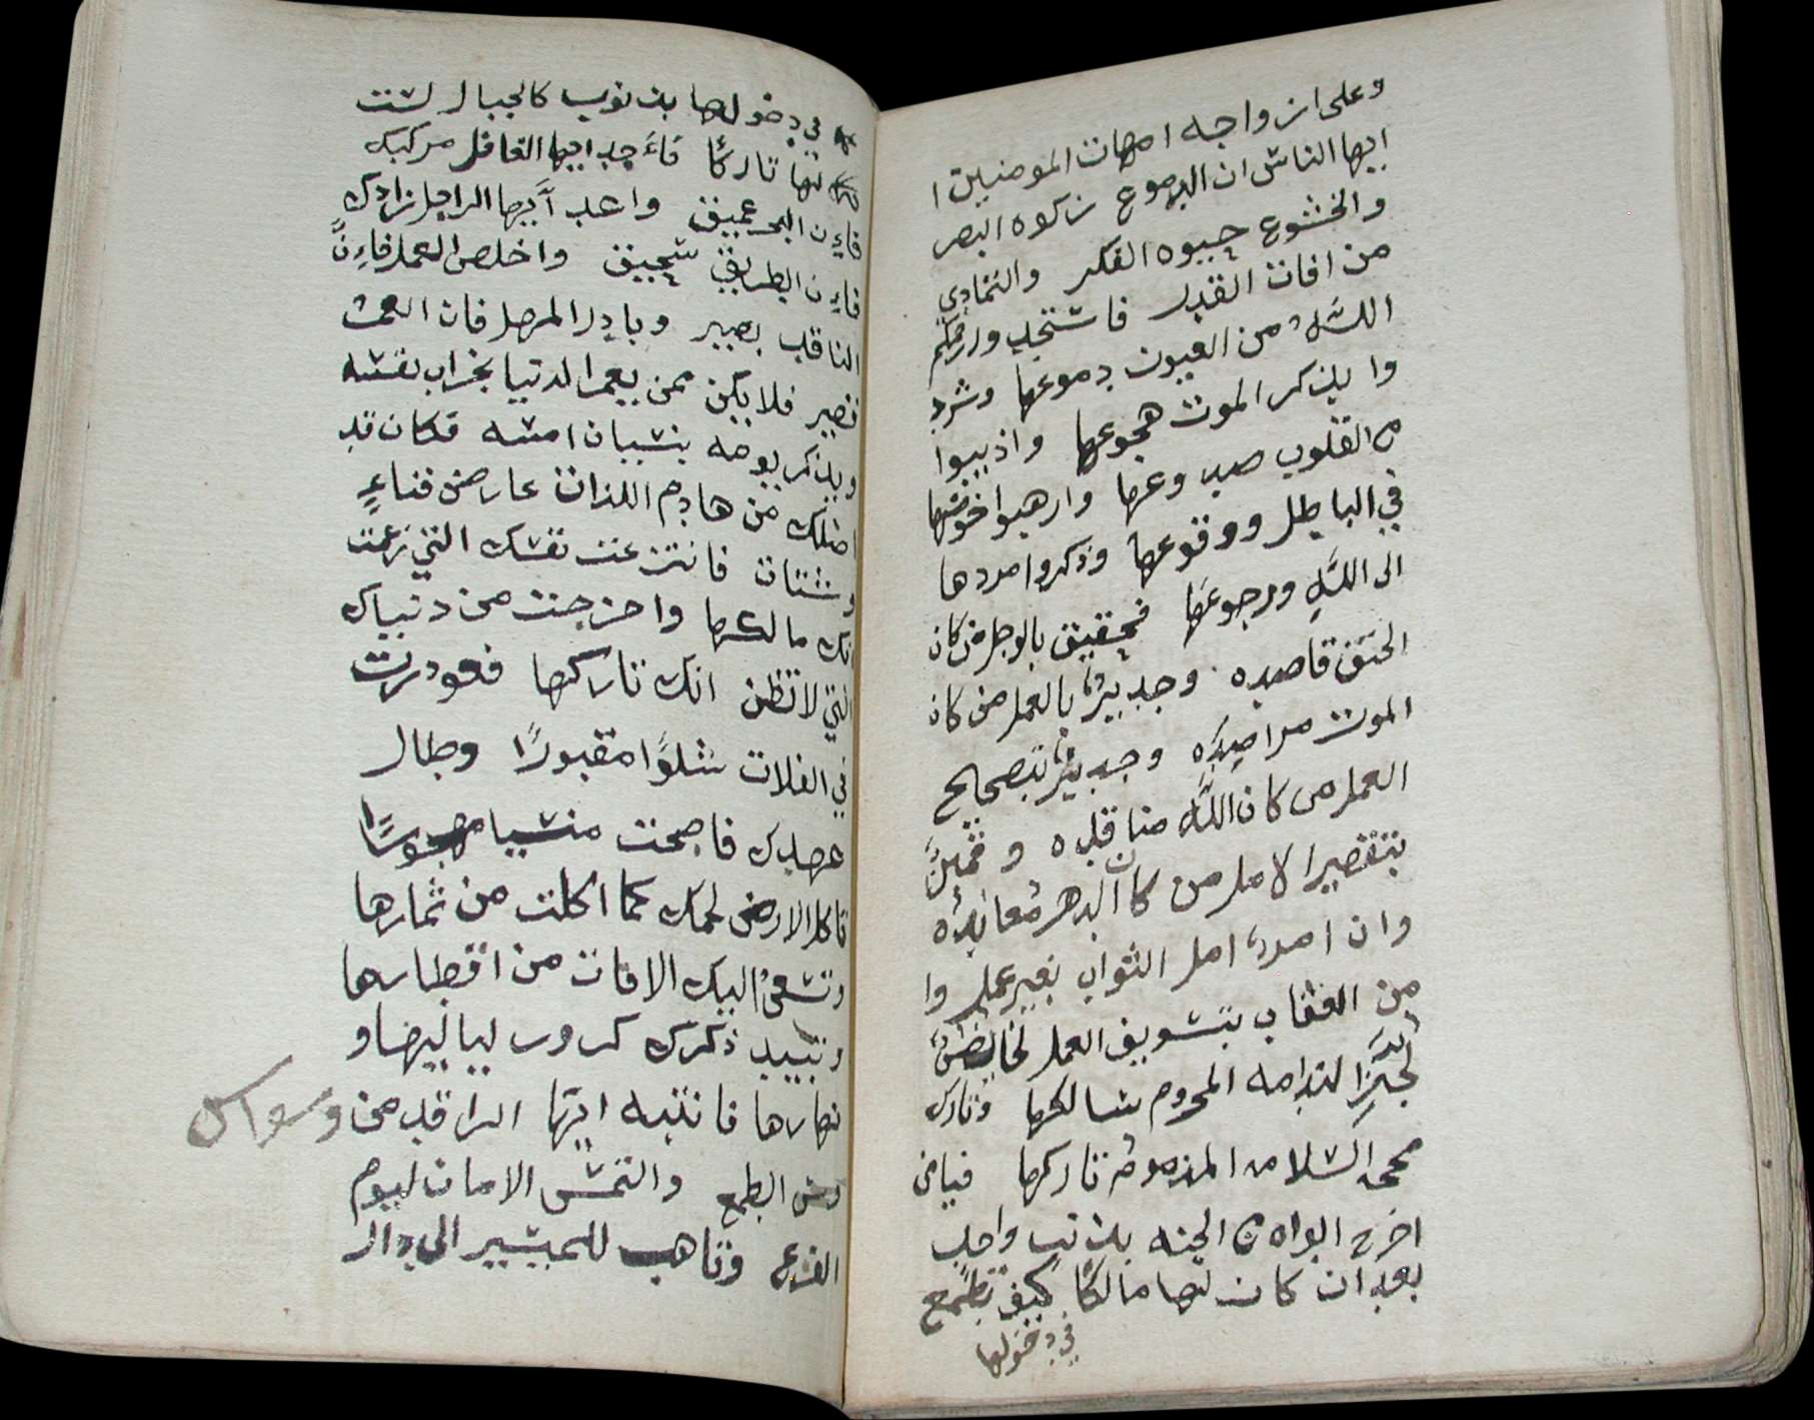 وعلى ازواجه امهات المومنين ا
ايها الناس ان الدموع زكوه البصر
والخشوع حيوه الفكر والتمادي
من افات القدر فاستجدوا رحمكم
اللهُ من العيون دموعها وشرد
وا بذكر الموت هجوعها واذيبوا
من القلوب صدوعها وارهبوا خوضها
في الباطل ووقوعها وذكروا مردها
الى اللهِ ورجوعها فحقيق بالوجل من كان
الحتف قاصده وجديرٌ بالعمل من كان
الموت مراصدِه وجديرٌ بتصحيح
العمل من كان اللّه مناقده وقمينٌ
بتقصير الامل من كان الدهر مُعانِدُه
وان امرءً امل الثواب بغير عمل وا
من العقاب بتسويف العمل لخالصٌ
لجد الندامه المحروم سالكها وتارك
محجه السلامه المذموم تاركها فيامن
اخرج ابواه من الجنه بذنب واحد
بعد ان كان لها مالكًا كيف تطمع
في دخولها
في دخولها بذنوب كالجبال لست
لها تاركًا فاَجد ايها الغافل مركبك
فاِن البحر عميق واعد اَيها الراحل زادك
فاِن الطريق سحيق واخلص العمل فاِنَّ
الناقد بصير وبادر المهل فان العمر
قصير فلا يكن ممن يعمر الدنيا بخراب نفسه
ويذكر يومه بنسيان امسه فكان قد
اضلك من هادم اللذات عارض فناءٍ
وشتات فانتزعت نفسك التي زعمت
انك مالكها واخرجت من دنياك
التي لا تظن انك تاركها فغودرت
في الفلات شلوًا مقبورًا وطال
عهدك فاصبحت منسيا مهجورًا
تاكل الارض لحمك كما اكلت من ثمارها
وتسعىُ اليك الافات من اقطارها
وتبيد ذكرك كرور لياليها و
نهارها فانتبه ايّها الراقد من وسواس
وسن الطمع والتمس الامان ليوم
الفزع وتاهب للمسير الى دار